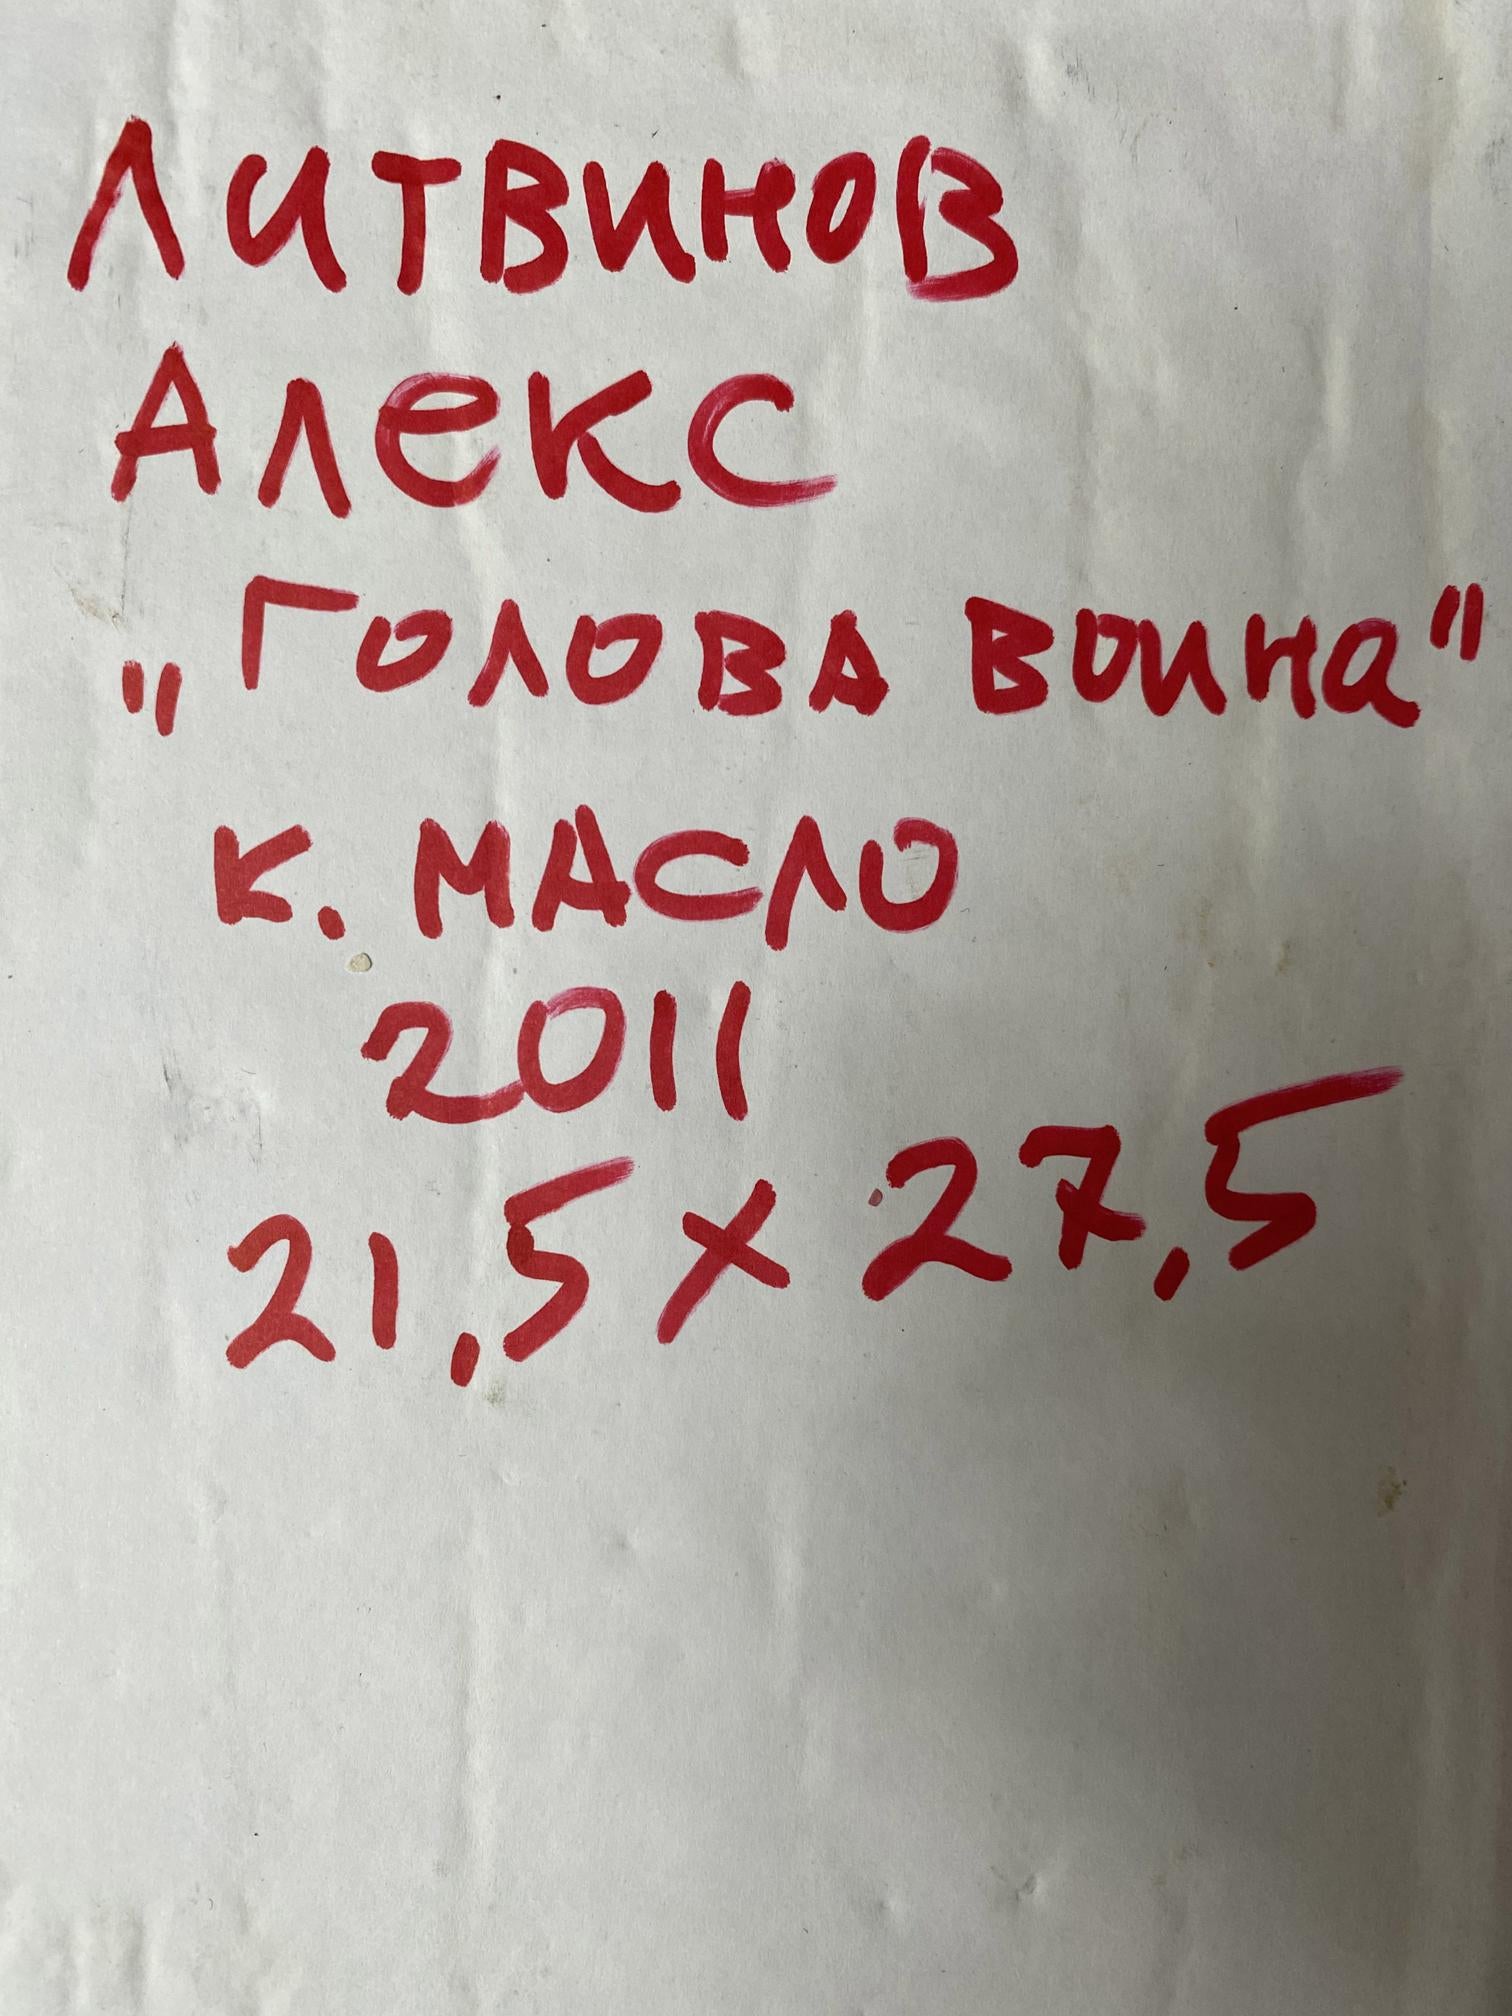 ЛИТВИНОВ
АЛЕКС
„ГОЛОВА ВОИНа"
К. МАСЛО
2011
21,5 х 27,5